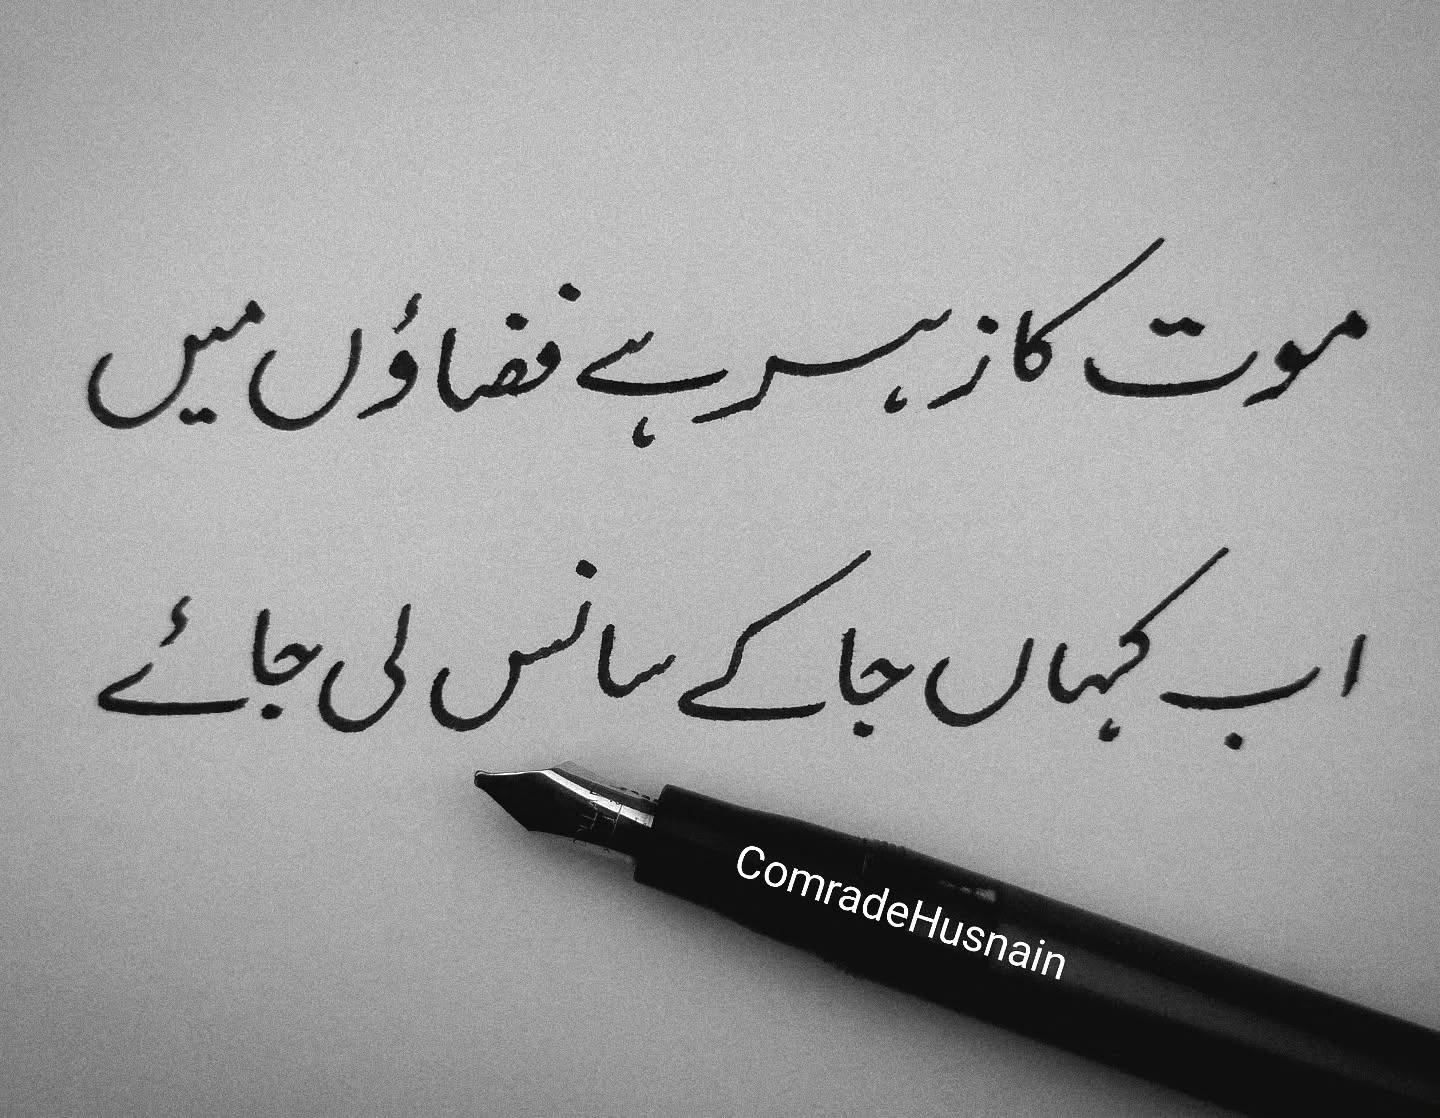 موت کا زہر ہے فضاؤں میں
اب کہاں جا کے سانس لی جائے
ComradeHusnain